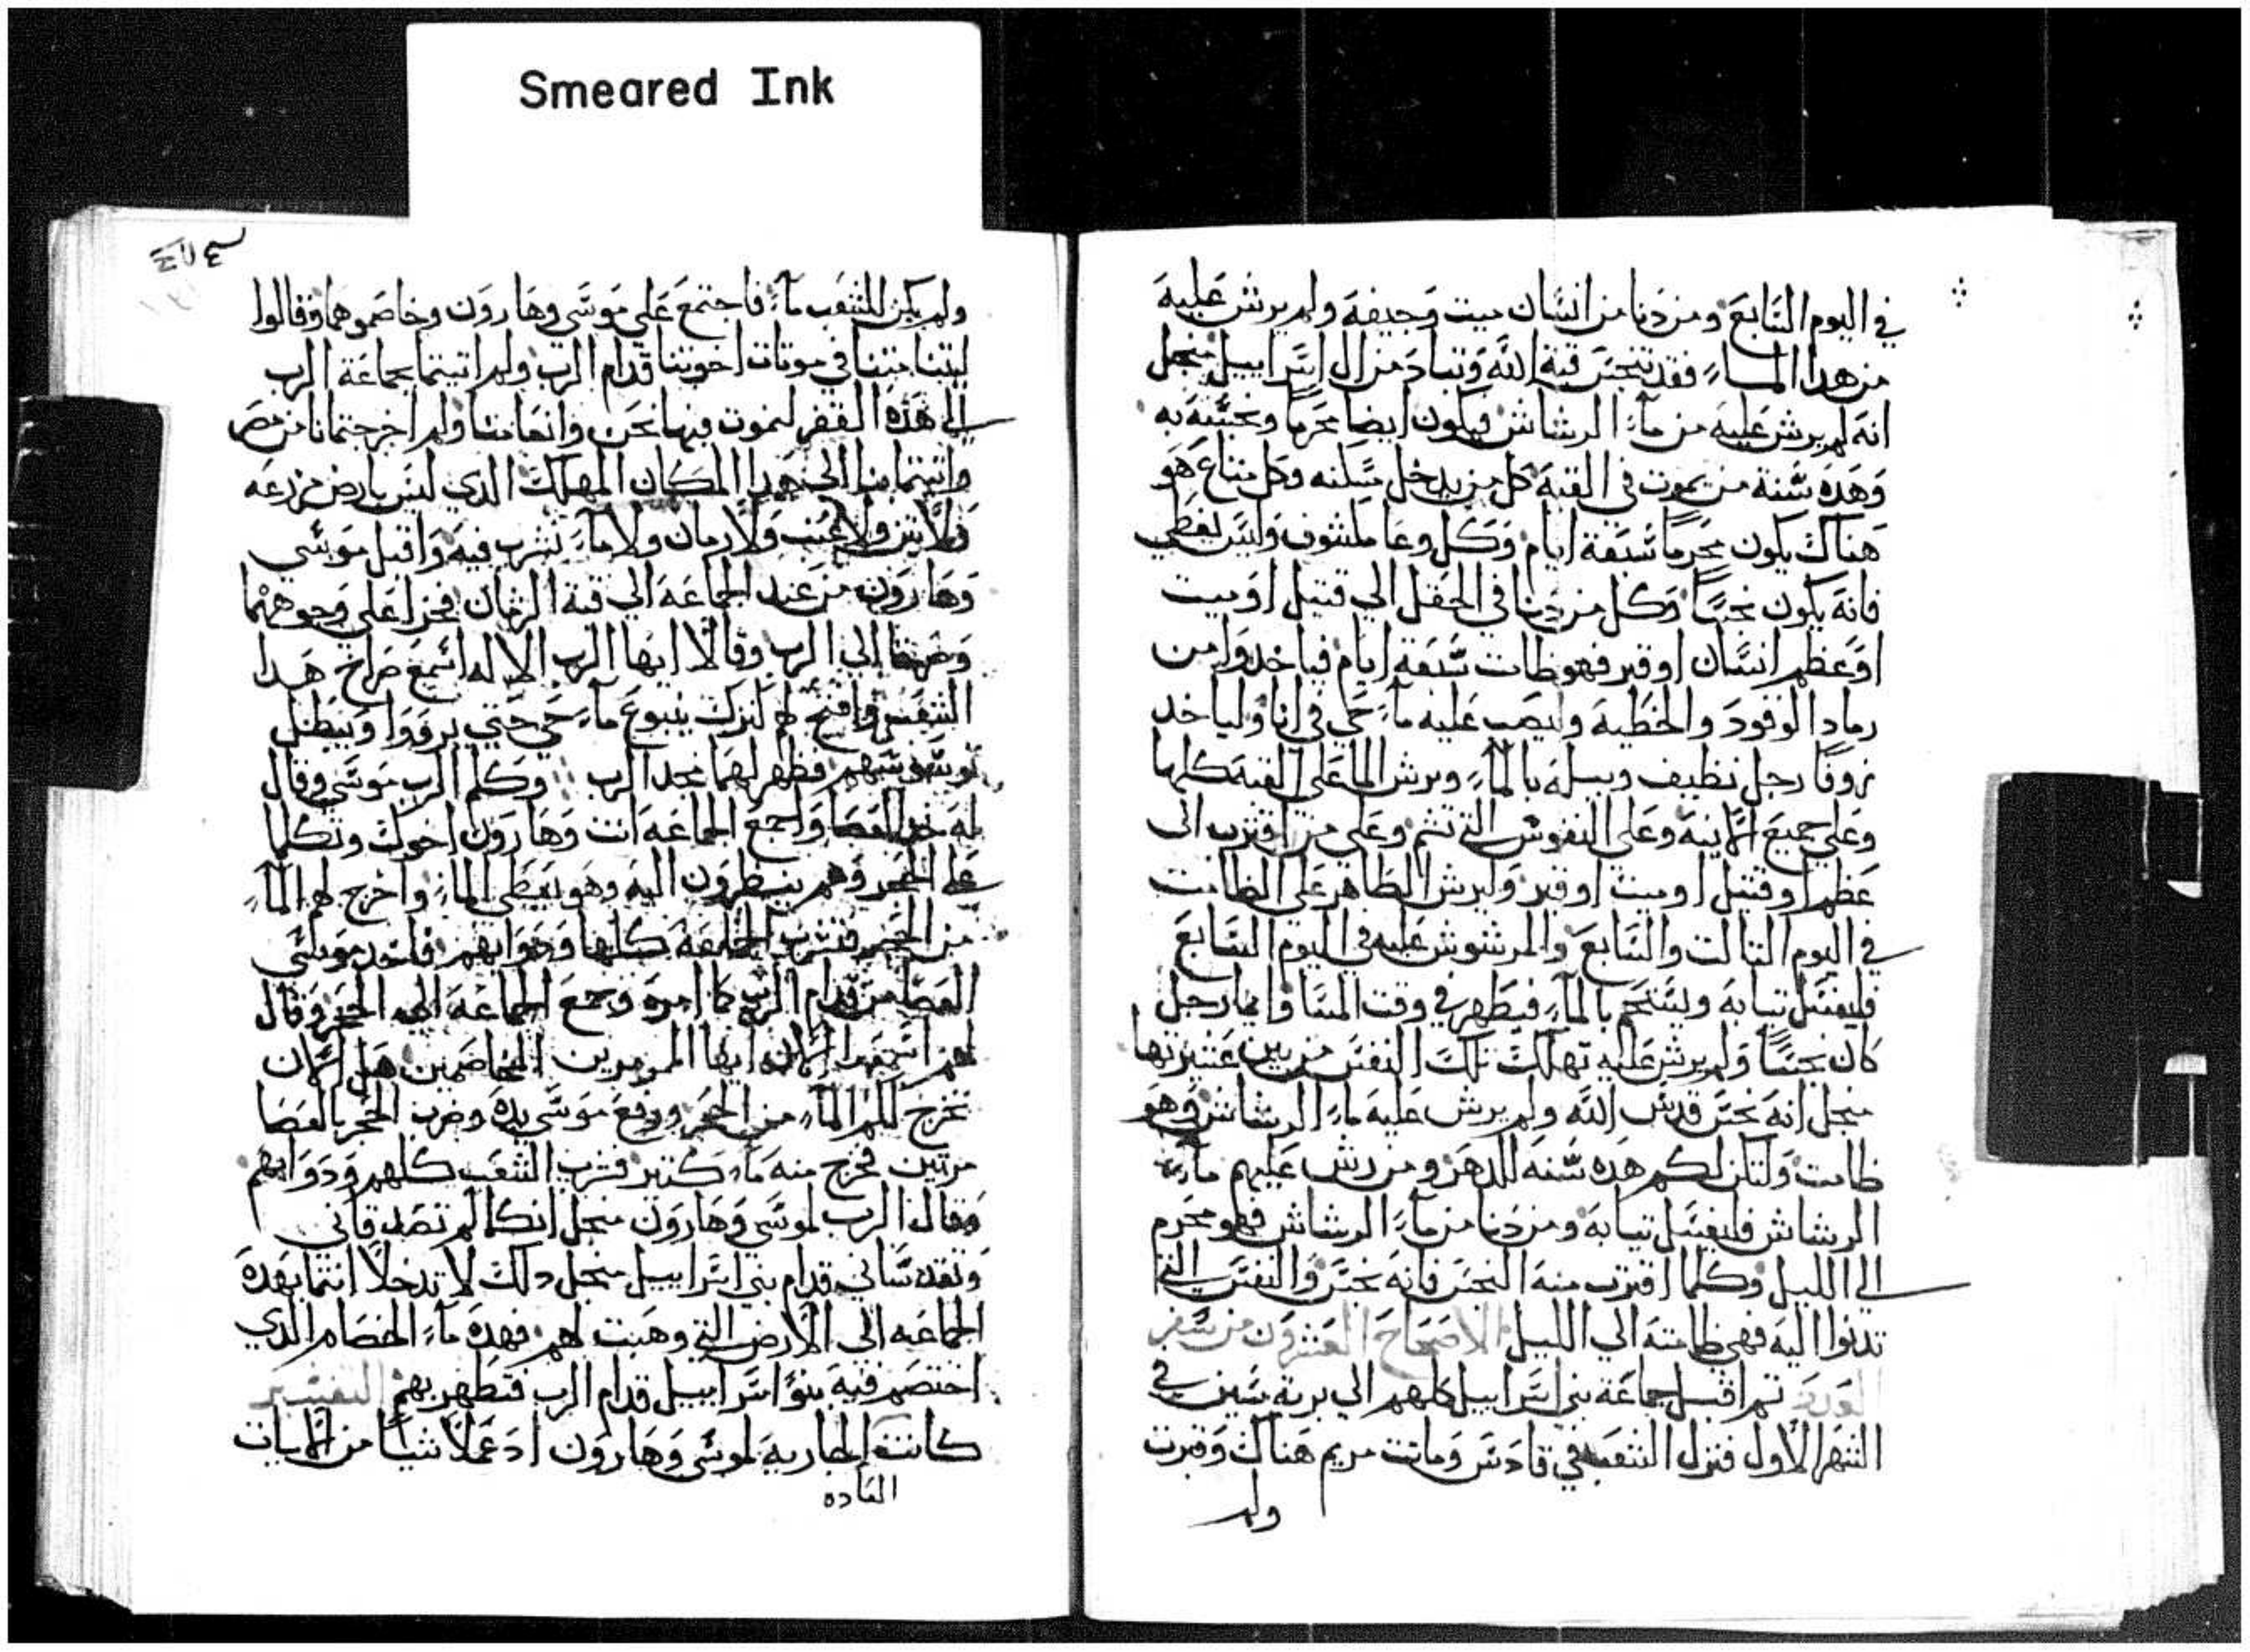 Smeared Ink
في اليوم السابع ومن دنا من انسان ميت وجيفه ولم يرش عليه
من هدا الماء فقد نجس قبة الله وتباد من ال اسراييل منجل
انه لم يرش عليه من ماء الرشاش فيكون ايضا محرما ونجسته به
وهده سنة من يموت في القبة كل من يدخل مسكنه وكل متاع هو
هناك يكون محرما سبعة ايام وكل وعا مكشوف وليس يغطي
فانه يكون نجسا وكل من دنا في الحقل الي قتيل او ميت
او عظم انسان او قبر فهو طامت سبعة ايام فياخدوا من
رماد الوقود والخطية وليصب عليه ماء حي في انا ولياخد
زوفا رجل نظيف ويبله بالماء ويرش الما علي القبة كلها
وعلي جميع الانية وعلي النفوس التي تم وعلي من اقترب الي
عظم او قتيل او ميت او قبر وليرش الطاهر علي الطامت
في اليوم التالت والسابع والمرشوش عليه في اليوم السابع
فليغسل تيابه ويستحم بالماء فيطهر في وقت المسا وايما رجل
كان نجسا ولم يرش عليه تهلك تلك النفس من بين عشيرتها
منجل انه نجس قدس الله ولم يرش عليه ماء الرشاش فهو
طامت ولتكن لكم هده سنه للدهر ومن رش عليهم ماء
الرشاش فليغسل تيابه ومن دنا من ماء الرشاش فهو محرم
الي الليل وكلما اقترب منه النجس فانه نجس والنفس التي
تدنوا اليه فهي طامته الي الليل الاصحاح العشرون من سفر
العدد تم اقبل جماعة بني اسراييل كلهم الي برية سين في
الشهر الاول فنزل الشعب في قادس وماتت مريم هناك وقبرت
ولم
ولم يكن للشعب ماء فاجتمع علي موسي وهارون وخاصموهما وقالوا
ليتنا متنا في موتات اخوتنا قدام الرب ولم اتيتما بجماعة الرب
الي هده القفر لنموت فيها نحن وانعامنا ولم اخرجتمانا من مصر
واتيتما بنا الي هدا المكان المهلك الدي ليس بارض مزرعه
ولا تين ولا عنب ولا رمان ولا ماء نشرب فيه واقبل موسي
وهارون من عند الجماعه الي قبة الزمان فخرا علي وجوههما
الي الرب وقالا ايها الرب الاله اسمع صراخ هدا
الشعب وافتح لهم كنزك ينبوع ماء حي حتي يرووا ويبطل
فظهر لهما مجد الرب وكلم الرب موسي وقال
له خد العصا واجمع الجماعه انت وهارون اخوك وتكلما
علي الحجر وهم ينظرون اليه وهو يعطي الماء واخرج لهم الماء
من الحجر فتشرب الجماعة كلها ودوابهم فاخد موسي
العصا من قدام الرب كما امره وجمع الجماعه الي الحجر وقال
لهم اسمعوا الان ايها المرمرين المخاصمين هل الان
نخرج لكم الماء من الحجر ورفع موسي يده وضرب الحجر بالعصا
مرتين فخرج منه ماء كتير فشرب الشعب كلهم ودوابهم
وقال الرب لموسي وهارون منجل انكما لم تصدقاني
وتقدساني قدام بني اسراييل منجل دلك لا تدخلا انتما بهده
الجماعه الي الارض التي وهبت لهم فهده ماء الخصام الدي
اختصم فيه بنوا اسراييل قدام الرب فتطهر بهم التفسير
كانت الحجاريه لموسي وهارون اد عملا شيا من الايات